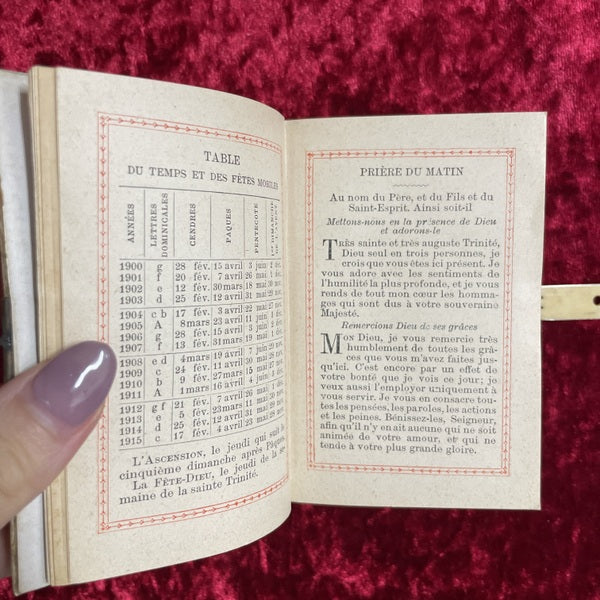 TABLE
DU TEMPS ET DES FÊTES MOBILES
ANNÉES LETTRES DOMINICALES CENDRES PAQUES PENTECOTE 1er DIMANCHE DE L'AVENT
1900 g 28 fév. 15 avril 3 juin
1901 f 20 fév. 7 avril 26 mai
1902 e 12 fév. 30 mars 18 mai
1903 d 25 fév. 12 avril 31 mai
1904 c b 17 fév. 3 avril 22 mai
1905 A 8 mars 23 avril 11 juin
1906 g 28 fév. 15 avril 3 juin
1907 f 13 fév. 31 mars 19 mai
1908 e d 4 mars 19 avril
1909 c 24 fév. 11 avril 30 mai
1910 b 9 fév. 27 mars
1911 A 1 mars 16 avril
1912 g f 21 fév. 7 avril 26 mai
1913 e 5 fév. 23 mars 11 mai
1914 d 25 fév. 12 avril 31 mai
1915 c 17 fév. 4 avril 23 mai
L'ASCENSION, le jeudi qui suit le
cinquième dimanche après Pâques.
LA FÊTE-DIEU, le jeudi de la se-
maine de la sainte Trinité.
PRIÈRE DU MATIN
Au nom du Père, et du Fils et du
Saint-Esprit. Ainsi soit-il
Mettons-nous en la présence de Dieu
et adorons-le
TRÈS sainte et très auguste Trinité,
Dieu seul en trois personnes, je
crois que vous êtes ici présent. Je
vous adore avec les sentiments de
l'humilité la plus profonde, et je vous
rends de tout mon cœur les homma-
ges qui sont dus à votre souveraine
Majesté.
Remercions Dieu de ses grâces
MON DIEU, je vous remercie très
humblement de toutes les grâ-
ces que vous m'avez faites jus-
qu'ici. C'est encore par un effet de
votre bonté que je vois ce jour; je
veux aussi l'employer uniquement à
vous servir. Je vous en consacre toutes
les pensées, les paroles, les actions
et les peines. Bénissez-les, Seigneur,
afin qu'il n'y en ait aucune qui ne soit
animée de votre amour, et qui ne
tende à votre plus grande gloire.